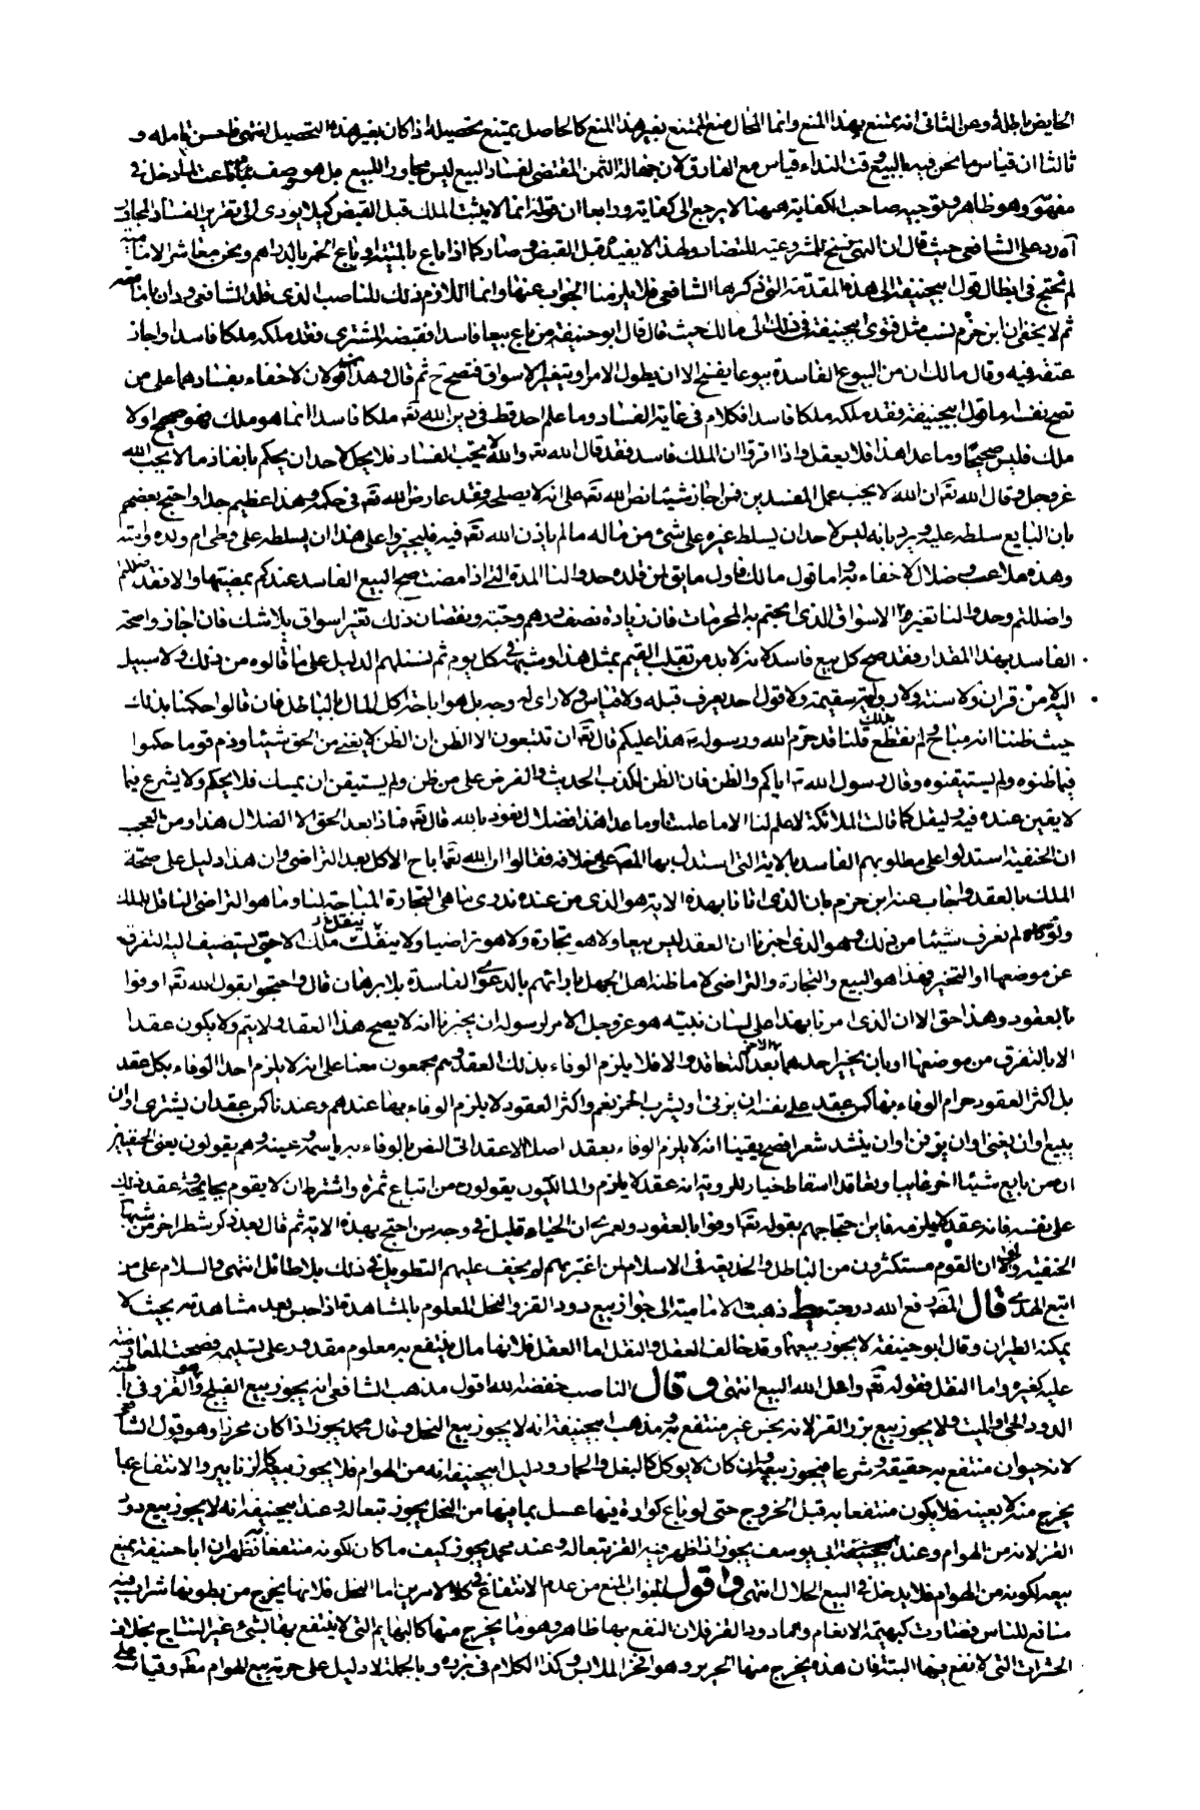 الحايض باطلة وعن الثاني انه يمتنع بهذا المنع وانما المحال منع الممتنع بغير هذا المنع كالحاصل يمتنع تحصيله اذا كان بغير هذا التحصيل انتهى فاحسن تامله و
ثالثا ان قياس ما نحن فيه بالبيع وقت النداء قياس مع الفارق لان جهالة الثمن المقتضي لفساد البيع ليس مجاور للبيع بل هو وصف
مفهومه وهو ظاهر وتوجيه صاحب الكفاية ههنا لا يرجع الى كفاية ورابعا ان قوله انما لا يثبت الملك قبل القبض كيلا يودي الى تقرير الفساد المجاور
آه رد على الشافعي حيث قال ان النهي نسخ للمشروعية للتضاد ولهذا لا يفيده قبل القبض وصار كما اذا باع بالميتة او باع الخمر بالدراهم ونحن معاشر الامامية
لم نحتج في ابطال قول ابيحنيفة الى هذه المقدمة التي ذكرها الشافعي فلا يلزمنا الجواب عنها وانما اللازم ذلك للناصب الذي قلد الشافعي ودان بامامته
ثم لا يخفى ان ابن حزم نسب مثل فتوى ابيحنيفة في ذلك الى مالك حيث قال قال ابو حنيفة من باع بيعا فاسدا فقبضه المشتري فقد ملكه ملكا فاسدا واجاز
عتقه فيه وقال مالك ان من البيوع الفاسدة بيوعا يفسخ الا ان يطول الامر او يتغير الاسواق فتصح ح ثم قال وهذا قولان لا خفاء بفسادهما على من
نصح نفسه اما قول ابيحنيفة فقد ملكه ملكا فاسدا فكلام في غاية الفساد وما علم احد قط في دين الله تعه ملكا فاسدا انما هو ملك فهو صحيح او لا
ملك فليس صحيحا وما عدا هذا فلا يعقل واذا اقر ان الملك فاسد فقد قال الله تعه والله لا يحب الفساد فلا يحل لاحد ان يحكم بانفاذ ما لا يحب الله
عز وجل وقال الله تعه ان الله لا يحب عمل المفسدين فمن اجاز شيئا نص الله تعه على انه لا يصلحه فقد عارض الله تعه في حكمه وهذا عظيم جدا واحتج بعضهم
بان البايع سلطه عليه ويرد بانه ليس لاحد ان يسلط غيره على شئ من ماله ما لم ياذن الله تعه فيه فليجيزوا على هذا ان يسلطه على وطى ام ولده وابنته
وهذه ملاعب وضلال لا خفاء به واما قول مالك فاول ما يق لمن قلده حدوا لنا المدة التي اذا مضت صح البيع الفاسد عندكم بمضيها والا فقد ضللتم
واضللتم وحدوا لنا تغير الاسواق الذي ابحتم به المحرمات فان زيادة نصف درهم وحبة ونقصان ذلك تغير اسواق بلا شك فان اجاز واصحة
الفاسد بهذا المقدار فقد صح كل بيع فاسد لانه لا بد من تقلب القيم بمثل هذا وشبهه في كل يوم ثم نسئلهم الدليل على ما قالوه من ذلك ولا سبيل
اليه لا من قران ولا سنة ولا رواية سقيمة ولا قول احد يعرف قبله ولا قياس ولا راى له وجه بل هو اباحة اكل المال بالباطل فان قالوا حكمنا بذلك
حيث ظننا انه مباح لم نقطع بذلك قلنا قد حرم الله ورسوله ص هذا عليكم قال تعه ان تتبعون الا الظن ان الظن لا يغني من الحق شيئا وذم قوما حكموا
فيما ظنوه ولم يستيقنوه وقال رسول الله ص اياكم والظن فان الظن اكذب الحديث والفرض على من ظن ولم يستيقن ان يمسك فلا يحكم ولا يشرع فيما
لا يقين عنده فيه وليقل كما قالت الملائكة لا علم لنا الا ما علمتنا وما عدا هذا فضلال نعوذ بالله قال تعه فماذا بعد الحق الا الضلال هذا ومن العجب
ان الحنفية استدلوا على مطلوبهم الفاسد بالاية التي استدل بها المصه على خلافه فقالوا ان الله تعه اباح الاكل بعد التراضي وان هذا دليل على صحة
الملك بالعقد واجاب عنه ابن حزم بان الذي اتانا بهذه الاية هو الذي من عنده ندري ما هي التجارة المباحة لنا وما هو التراضي الناقل للملك
ولولاه لم نعرف شيئا من ذلك وهو الذي اخبرنا ان العقد ليس بيعا ولا هو تجارة ولا هو تراضيا ولا ينقلب ملك الا حتى يستضيف اليه التفرق
عن موضعهما او التخير فهذا هو البيع والتجارة والتراضي لا ما ظنه اهل الجهل باراتهم بالدعوى الفاسدة بلا برهان قال واحتجوا بقول الله تعه اوفوا
بالعقود وهذا حق الا ان الذي امرنا بهذا على لسان نبيه هو عز وجل الامر لرسوله ان يخبرنا انه لا يصح هذا العقد ولا يتم ولا يكون عقدا
الا بالتفرق من موضعهما او بان يخير احدهما الاخر بعد التعاقد والا فلا يلزم الوفاء بذلك العقد وهم مجمعون معنا على انه لا يلزم احدا الوفاء بكل عقد
بل اكثر العقود حرام الوفاء بها كمن عقد على نفسه ان يزني او يشرب الخمر نعم واكثر العقود لا يلزم الوفاء بها عندهم وعندنا كمن عقد ان يشتري او ان
يبيع او ان يغني او ان يزفن او ان ينشد شعرا فصح يقينا انه لا يلزم الوفاء بعقد اصلا الا عقد اتى النص بالوفاء به باسمه وعينه وهم يقولون يعني الحنفيين
ان من بايع شيئا اخر غايبا وتعاقدا اسقاط خيار للروية انه عقد لا يلزم والمالكيون يقولون من ابتاع ثمرة واشترط ان لا يقوم بجايحة وعقد ذلك
على نفسه فانه عقد لا يلزمه فاين احتجاجهم بقوله تعه اوفوا بالعقود ولعمري ان الحياء قليل في وجه من احتج بهذه الاية ثم قال بعد ذكر شطر اخر من شبهات
الحنفية ولولا ان القوم مستكثرون من الباطل والخديعة في الاسلام لمن اغتر بهم لم يخف عليهم التطويل في ذلك بلا طائل انتهى والسلام على من
اتبع الهدى قال المصه رفع الله درجته يط ذهبت الامامية الى جواز بيع دود القز والنحل المعلوم بالمشاهدة اذا حبس بعد مشاهدته بحيث لا
يمكنه الطيران وقال ابو حنيفة لا يجوز بيعهما وقد خالف العقل والنقل اما العقل فلانها مال ينتفع به معلوم مقدور على تسليمه وصحت المعاوضة
عليه كغيره واما النقل فقوله تعه واحل الله البيع انتهى وقال الناصب خفضه الله اقول مذهب الشافعي انه يجوز بيع الفيلج والقز وفي باطنه
الدود الحي والميت ولا يجوز بيع بزر القز لانه نجس غير منتفع به ومذهب ابيحنيفة انه لا يجوز بيع النحل وقال محمد يجوز اذا كان محرزا وهو قول الشافعي
لانه حيوان منتفع به حقيقة وشرعا فيجوز بيعه وان كان لا يوكل كالبغل والحمار ودليل ابيحنيفة انه من الهوام فلا يجوز بيعه كالزنابير والانتفاع بما
يخرج منه لا بعينه فلا يكون منتفعا به قبل الخروج حتى لو باع كوارة فيها عسل بما فيها من النحل يجوز تبعا له وعند ابيحنيفة انه لا يجوز بيع دود
القز لانه من الهوام وعند ابي يوسف يجوز اذا ظهر فيه القز تبعا له وعند محمد يجوز كيف ما كان لكونه منتفعا به فظهر ان ابا حنيفة يمنع
بيعه لكونه من الهوام فلا يدخل في البيع الحلال انتهى واقول الجواب المنع من عدم الانتفاع في كلا الامرين اما النحل فلانها يخرج من بطونها شراب فيه
منافع للناس فصارت كبهيمة الانعام واما دود القز فلان النفع بها ظاهر وهو ما يخرج منها كالبهايم التي لا ينتفع بها لشئ غير النتاج بخلاف
الحشرات التي لا نفع فيها البتة فان هذه يخرج منها الحرير وهو افخر الملابس وكذا الكلام في بزره وبالجملة لا دليل على حرمة بيع الهوام مطه وقياسه على